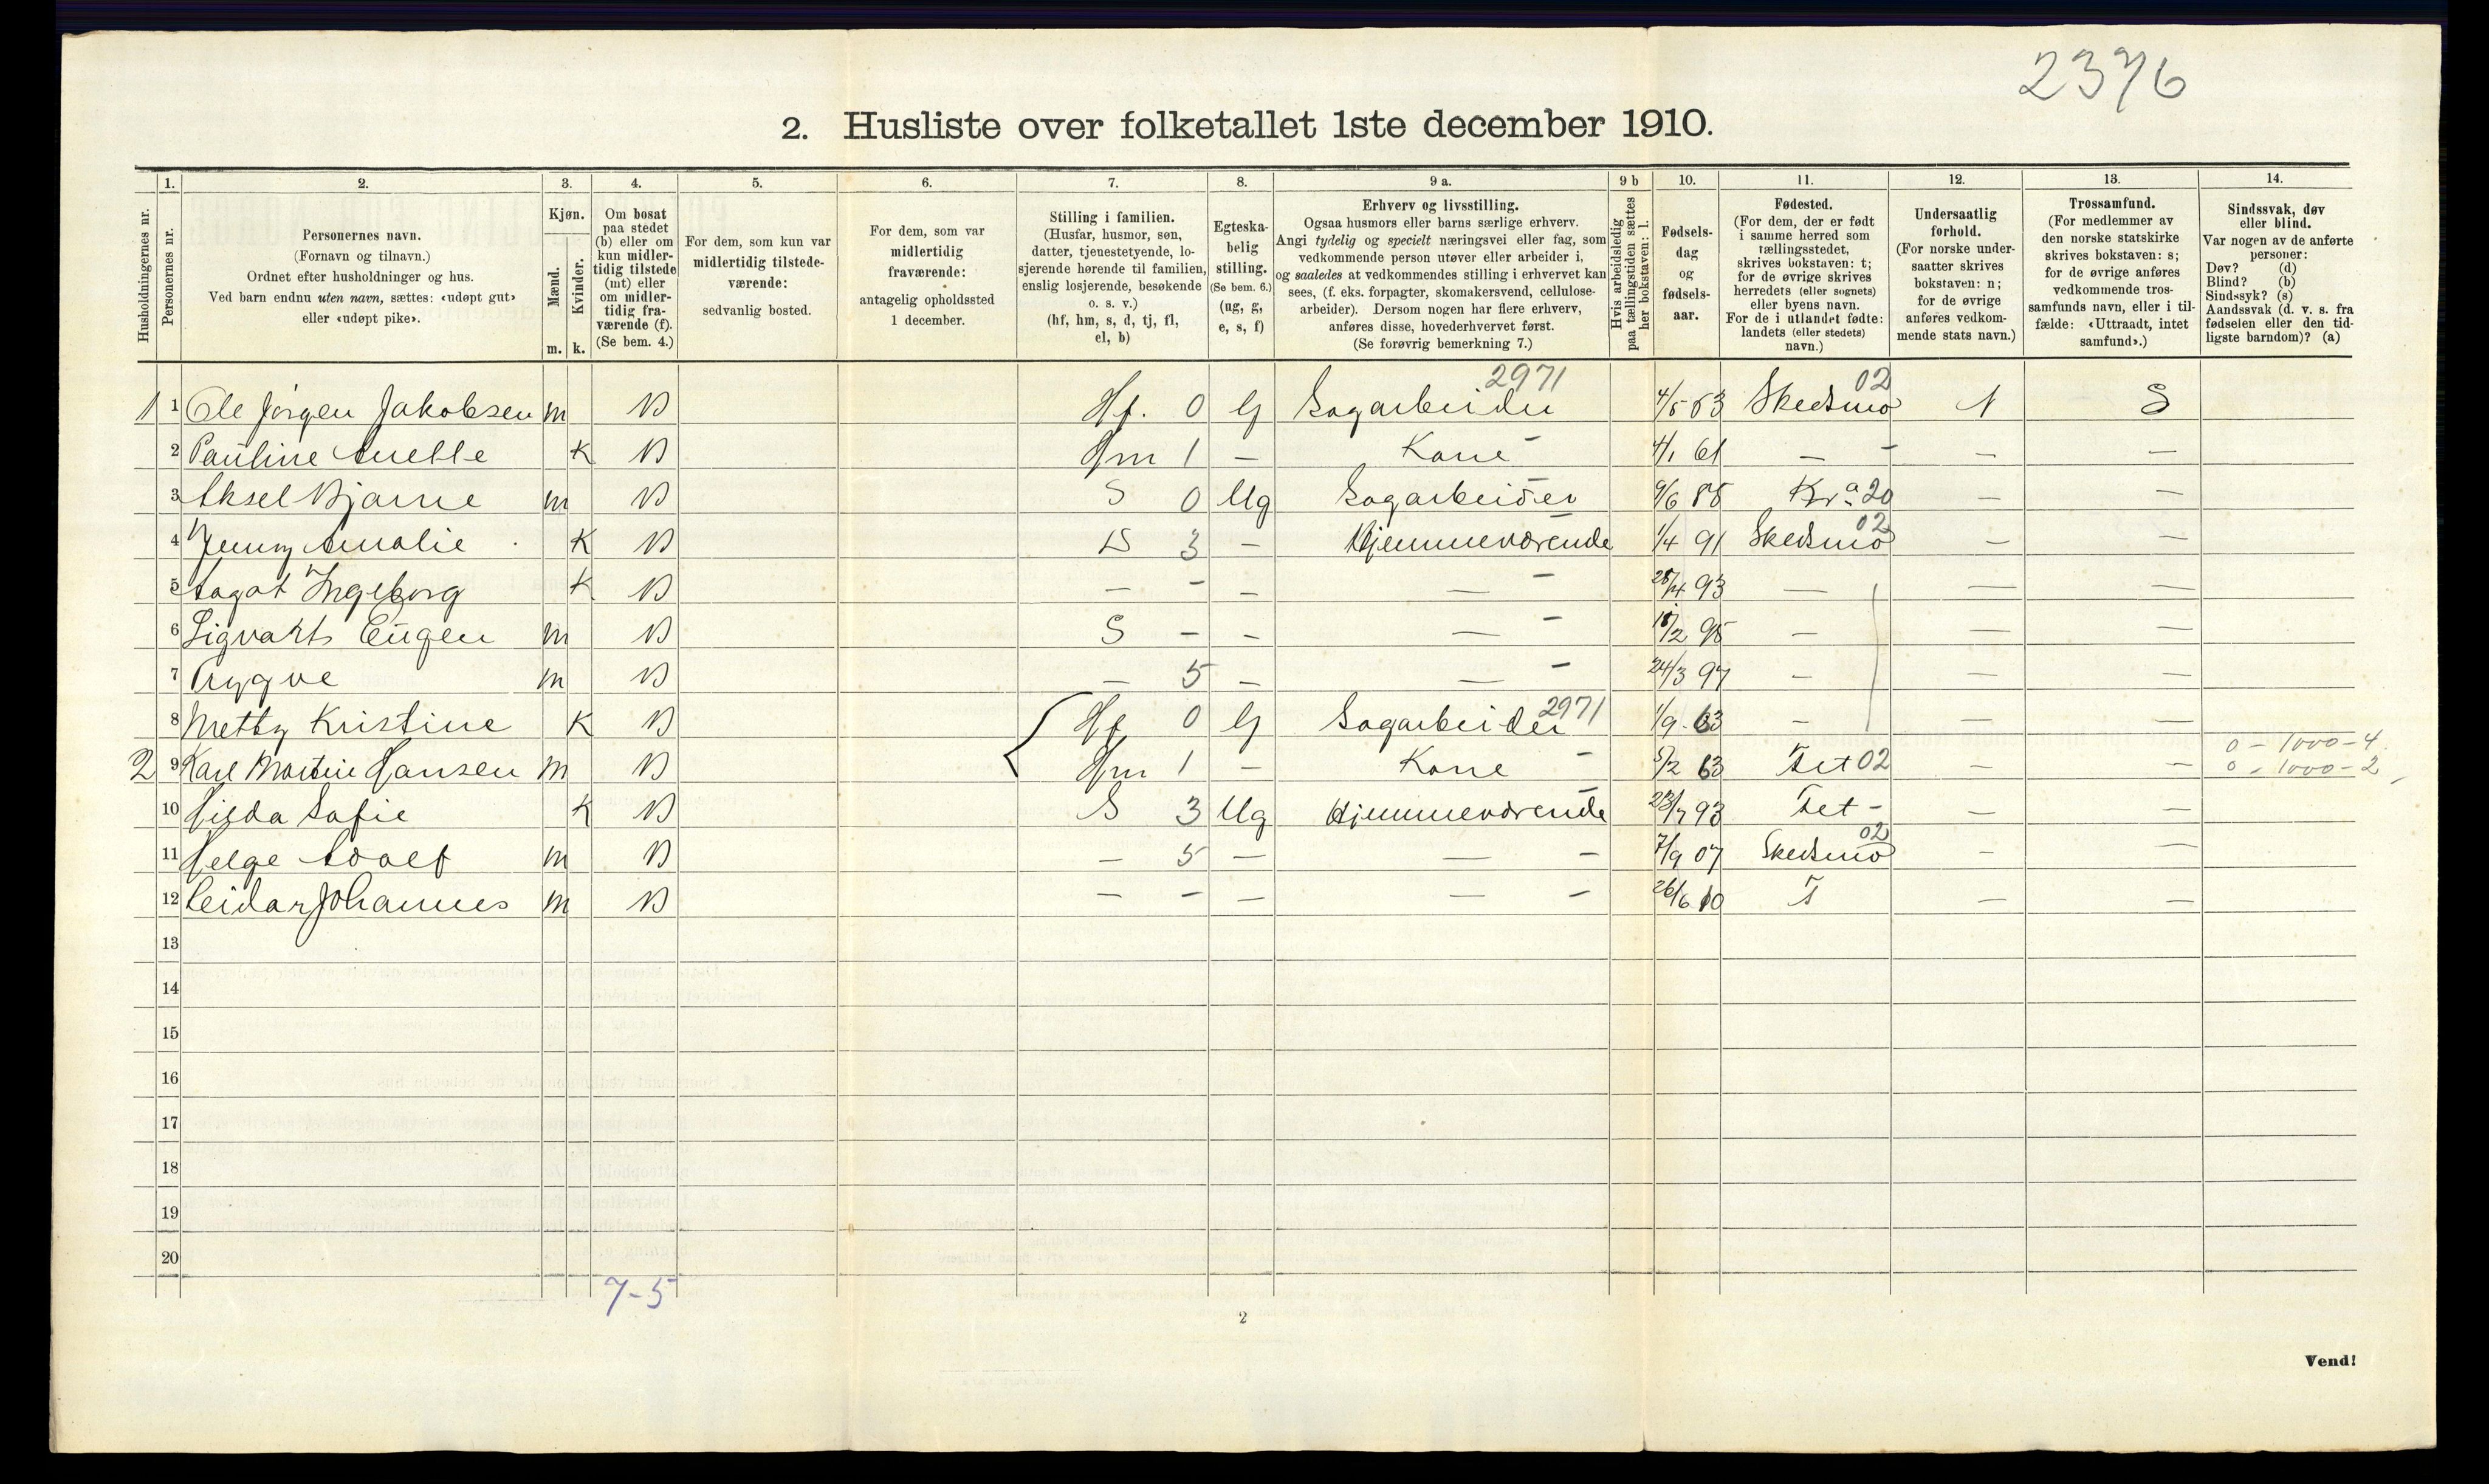 2376
2. Husliste over folketallet 1ste december 1910.
1. 2. 3. 4. 5. 6. 7. 8. 9 a. 9 b 10. 11. 12. 13. 14.
Husholdningernes nr.
Personernes nr.
Personernes navn.
(Fornavn og tilnavn.)
Ordnet efter husholdninger og hus.
Ved barn endnu uten navn, sættes: «udøpt gut»
eller «udøpt pike».
Kjøn.
Mænd.
Kvinder.
m. k.
Om bosat
paa stedet
(b) eller om
kun midler-
tidig tilstede
(mt) eller
om midler-
tidig fra-
værende (f).
(Se bem. 4.)
For dem, som kun var
midlertidig tilstede-
værende:
sedvanlig bosted.
For dem, som var
midlertidig
fraværende:
antagelig opholdssted
1 december.
Stilling i familien.
(Husfar, husmor, søn,
datter, tjenestetyende, lo-
sjerende hørende til familien,
enslig losjerende, besøkende
o. s. v.)
(hf, hm, s, d, tj, fl,
el, b)
Egteska-
belig
stilling.
(Se bem. 6.)
(ug, g,
e, s, f)
Erhverv og livsstilling.
Ogsaa husmors eller barns særlige erhverv.
Angi tydelig og specielt næringsvei eller fag, som
vedkommende person utøver eller arbeider i,
og saaledes at vedkommendes stilling i erhvervet kan
sees, (f. eks. forpagter, skomakersvend, cellulose-
arbeider). Dersom nogen har flere erhverv,
anføres disse, hovederhvervet først.
(Se forøvrig bemerkning 7.)
Hvis arbeidsledig
paa tællingstiden sættes
her bokstaven: l.
Fødsels-
dag
og
fødsels-
aar.
Fødested.
(For dem, der er født
i samme herred som
tællingsstedet,
skrives bokstaven: t;
for de øvrige skrives
herredets (eller sognets)
eller byens navn.
For de i utlandet fødte:
landets (eller stedets)
navn.)
Undersaatlig
forhold.
(For norske under-
saatter skrives
bokstaven: n;
for de øvrige
anføres vedkom-
mende stats navn.)
Trossamfund.
(For medlemmer av
den norske statskirke
skrives bokstaven: s;
for de øvrige anføres
vedkommende tros-
samfunds navn, eller i til-
fælde: «Uttraadt, intet
samfund».)
Sindssvak, døv
eller blind.
Var nogen av de anførte
personer:
Døv? (d)
Blind? (b)
Sindssyk? (s)
Aandssvak (d. v. s. fra
fødselen eller den tid-
ligste barndom)? (a)
2971 02
1 1 Ole Jörgen Jakobsen m B Hf. 0 G Sagarbeider 4/5 63 Skedsmo N S
2 Pauline Anette K B Hm 1 — Kone - 4/1 61 — - — —
3 Aksel Bjarne m B S 0 Ug Sagarbeider 9/6 88 Kra 20 — —
4 Jenny Amalie K B D 3 - Hjemmeværende 1/4 91 Skedsmo 02 — —
5 Aagot Ingeborg K B — - — — - 28/4 93 — — —
6 Sigvart Eugen m B S - - — - 18/2 95 — — —
7 Trygve m B — 5 — — - 24/3 97 — — —
8 Metty Kristine K B Hf 0 G Sagarbeider 2971 1/9 63 — — —
2 9 Karl Martin Hansen m B Hm 1 — Kone - 5/2 63 Fet 02 — — 0 - 1000 - 4
0 - 1000 - 2
10 Hilda Sofie K B S 3 Ug Hjemmeværende 23/7 93 Fet - — —
11 Helge Adolf m B — 5 — — - 7/9 07 Skedsmo 02 — —
12 Reidar Johannes m B — - — — - 26/6 10 T — —
13
14
15
16
17
18
19
20
7-5
2
Vend!